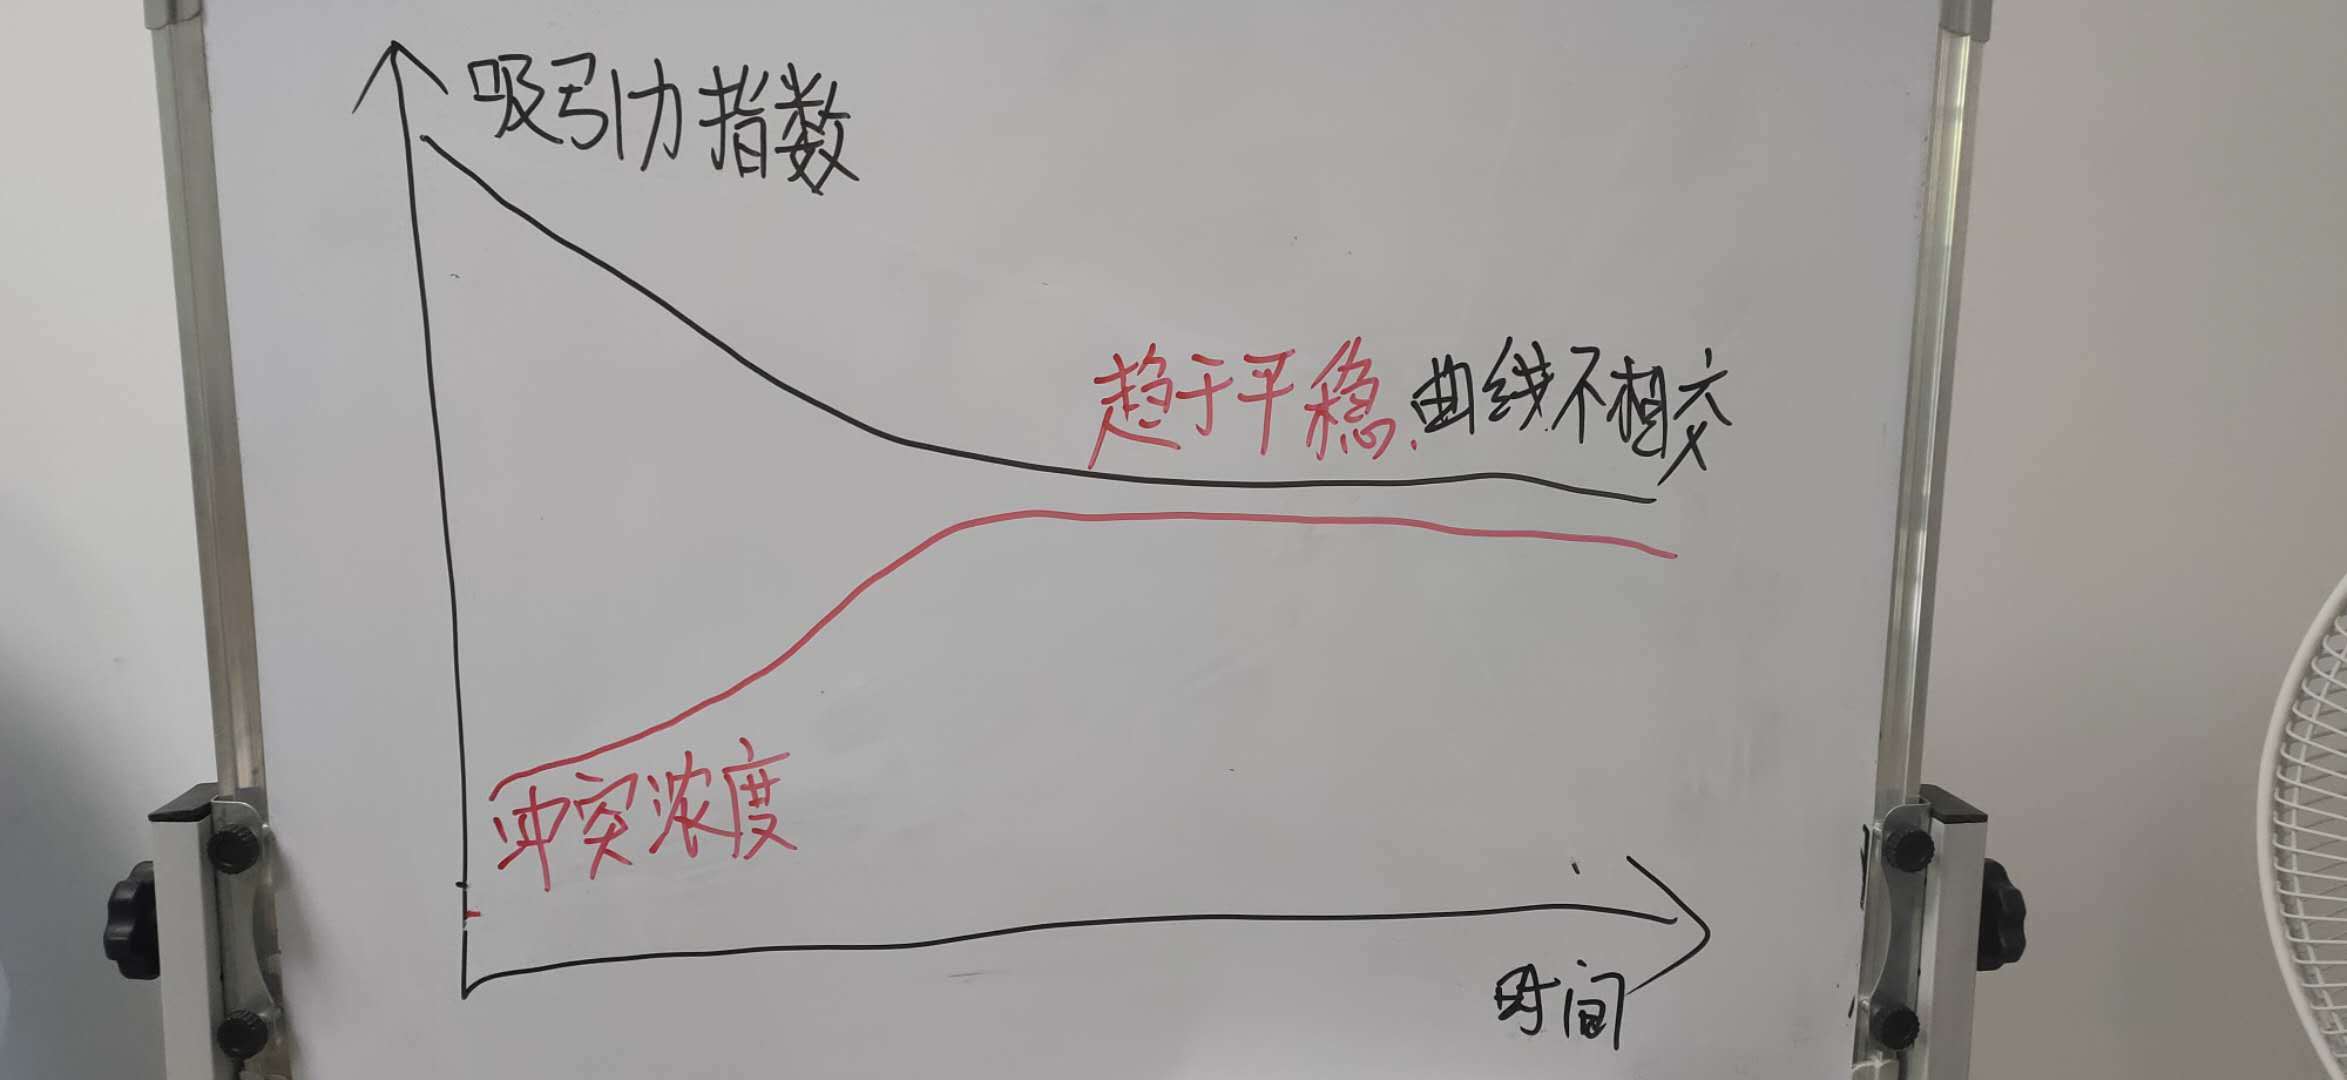 吸引力指数
趋于平稳.曲线不相交
冲突浓度
时间